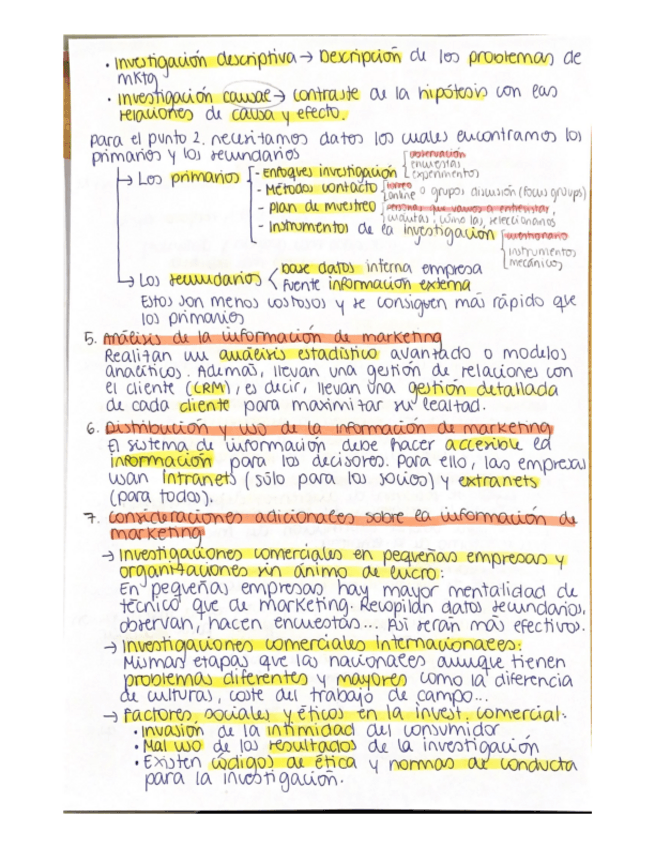 · Investigación descriptiva → Descripción de los problemas de
mktg
· Investigación causal → contraste de la hipótesis con las
relaciones de causa y efecto.
para el punto 2. necesitamos datos los cuales encontramos los
primarios y los secundarios
→ Los primarios
- Enfoques investigación
observación
encuestas
experimentos
- Métodos contacto
correo
online o grupos discusión (focus groups)
- plan de muestreo
personas que vamos a entrevistar,
cuantas, cómo las seleccionamos
- Instrumentos de la investigación
cuestionario
instrumentos
mecánicos
→ Los secundarios
base datos interna empresa
Fuente información externa
Estos son menos costosos y se consiguen más rápido que
los primarios
5. Análisis de la información de marketing
Realizan un análisis estadístico avanzado o modelos
analíticos. Además, llevan una gestión de relaciones con
el cliente (CRM), es decir, llevan una gestión detallada
de cada cliente para maximizar su lealtad.
6. Distribución y uso de la información de marketing
El sistema de información debe hacer accesible la
información para los decisores. Para ello, las empresas
usan intranets (sólo para los socios) y extranets
(para todos).
7. Consideraciones adicionales sobre la información de
marketing
→ Investigaciones comerciales en pequeñas empresas y
organizaciones sin ánimo de lucro:
En pequeñas empresas hay mayor mentalidad de
técnico que de marketing. Recopilan datos secundarios,
observan, hacen encuestas... Así serán más efectivos.
→ Investigaciones comerciales internacionales:
Mismas etapas que las nacionales aunque tienen
problemas diferentes y mayores como la diferencia
de culturas, coste del trabajo de campo...
→ Factores sociales y éticos en la invest. comercial:
· Invasión de la intimidad del consumidor
· Mal uso de los resultados de la investigación
· Existen códigos de ética y normas de conducta
para la investigación.